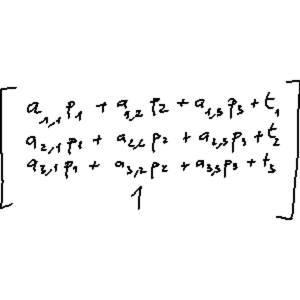 a₁,₁ p₁ + a₁,₂ p₂ + a₁,₃ p₃ + t₁
a₂,₁ p₁ + a₂,₂ p₂ + a₂,₃ p₃ + t₂
a₃,₁ p₁ + a₃,₂ p₂ + a₃,₃ p₃ + t₃
1